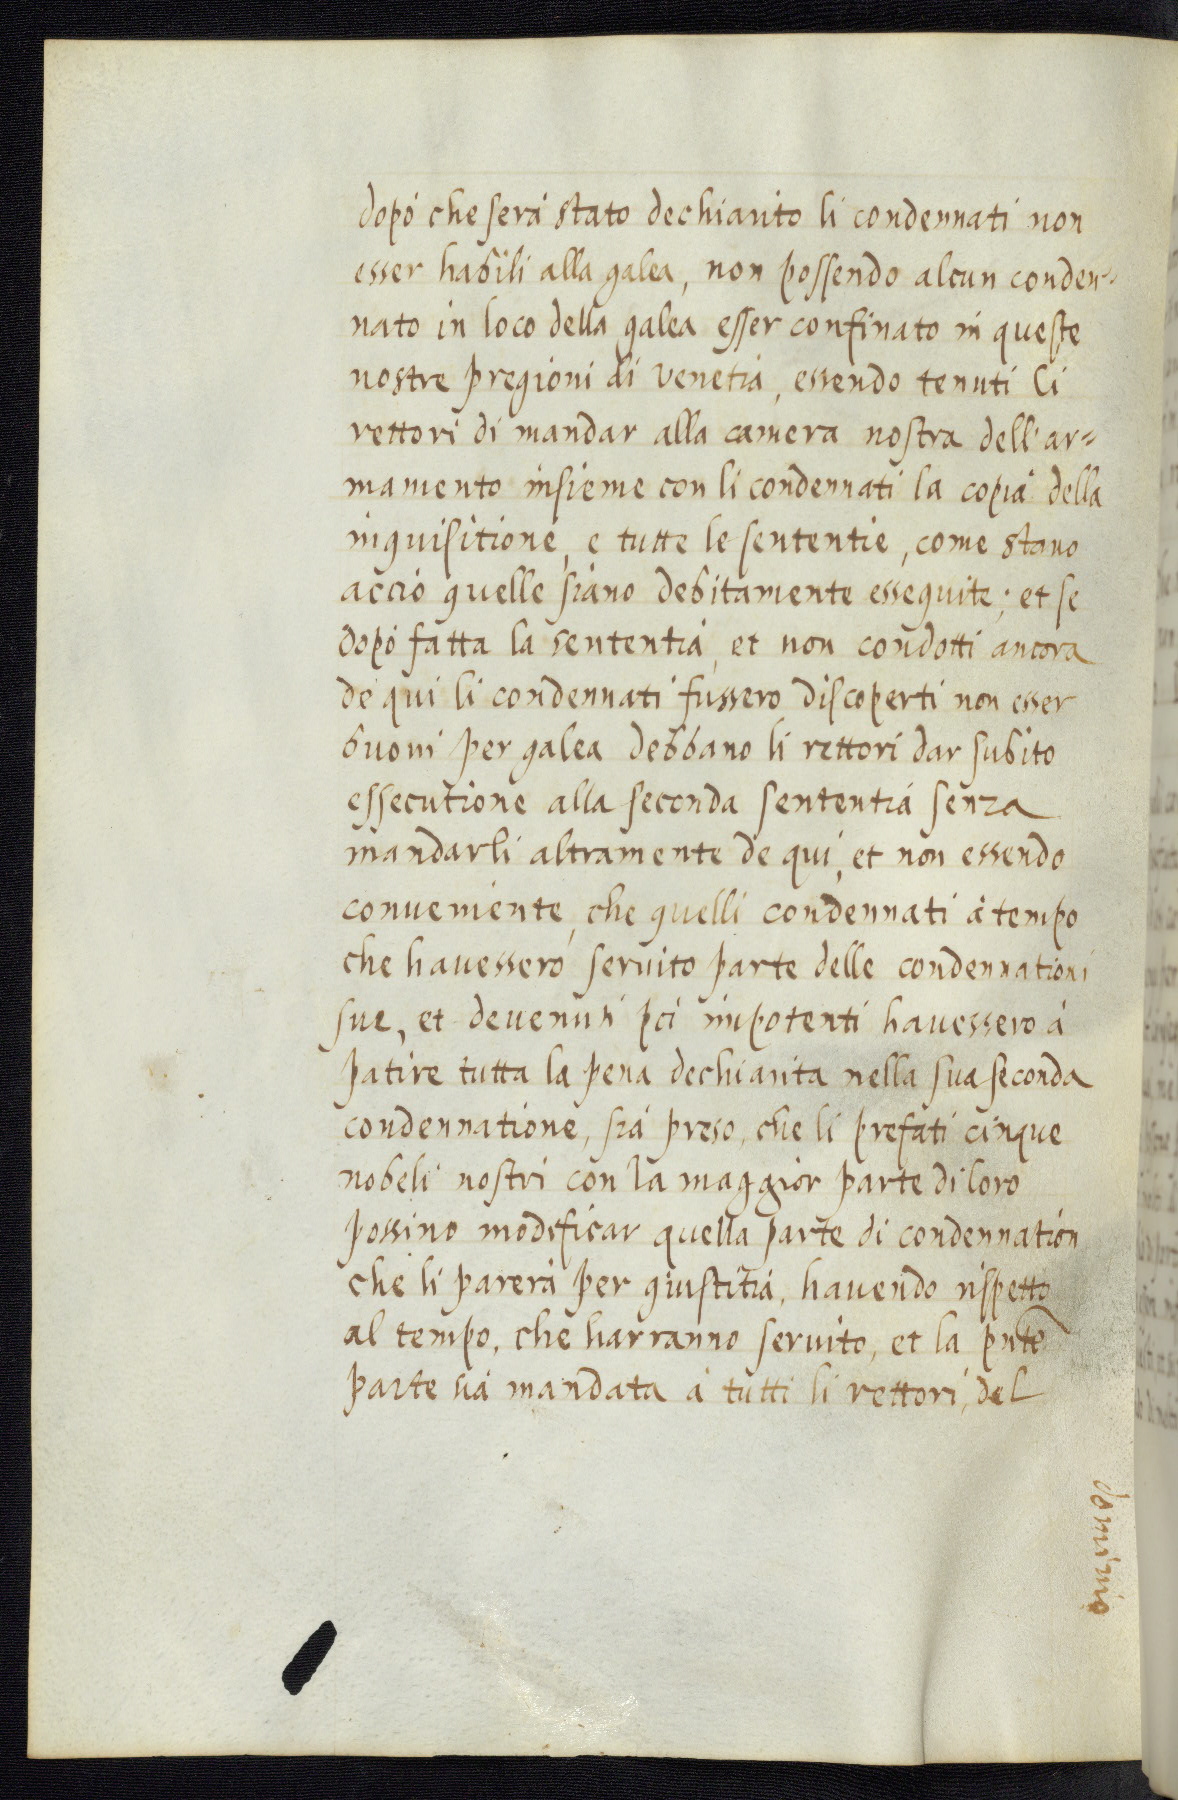 dopò che serà stato dechiarito li condennati non
esser habili alla galea, non possendo alcun conden-
nato in loco della galea esser confinato in queste
nostre pregioni di Venetia, essendo tenuti li
rettori di mandar alla camera nostra dell'ar=
mamento insieme con li condennati la copia della
inquisitione, e tutte le sententie, come stano
acciò quelle siano debitamente esseguite; et se
dopò fatta la sententia, et non condotti ancora
de qui li condennati fussero discoperti non esser
buoni per galea debbano li rettori dar subito
essecutione alla seconda sententia senza
mandarli altramente de qui, et non essendo
conveniente, che quelli condennati à tempo
che havessero servito parte delle condennationi
sue, et devenuti pci impotenti havessero à
patire tutta la pena dechiarita nella sua seconda
condennatione, sia preso, che li prefati cinque
nobeli nostri con la maggior parte di loro
possino modificar quella parte di condennation
che li parerà per giustitia, havendo rispetto
al tempo, che harranno servito, et la pnte
parte sia mandata à tutti li rettori, del
dominio